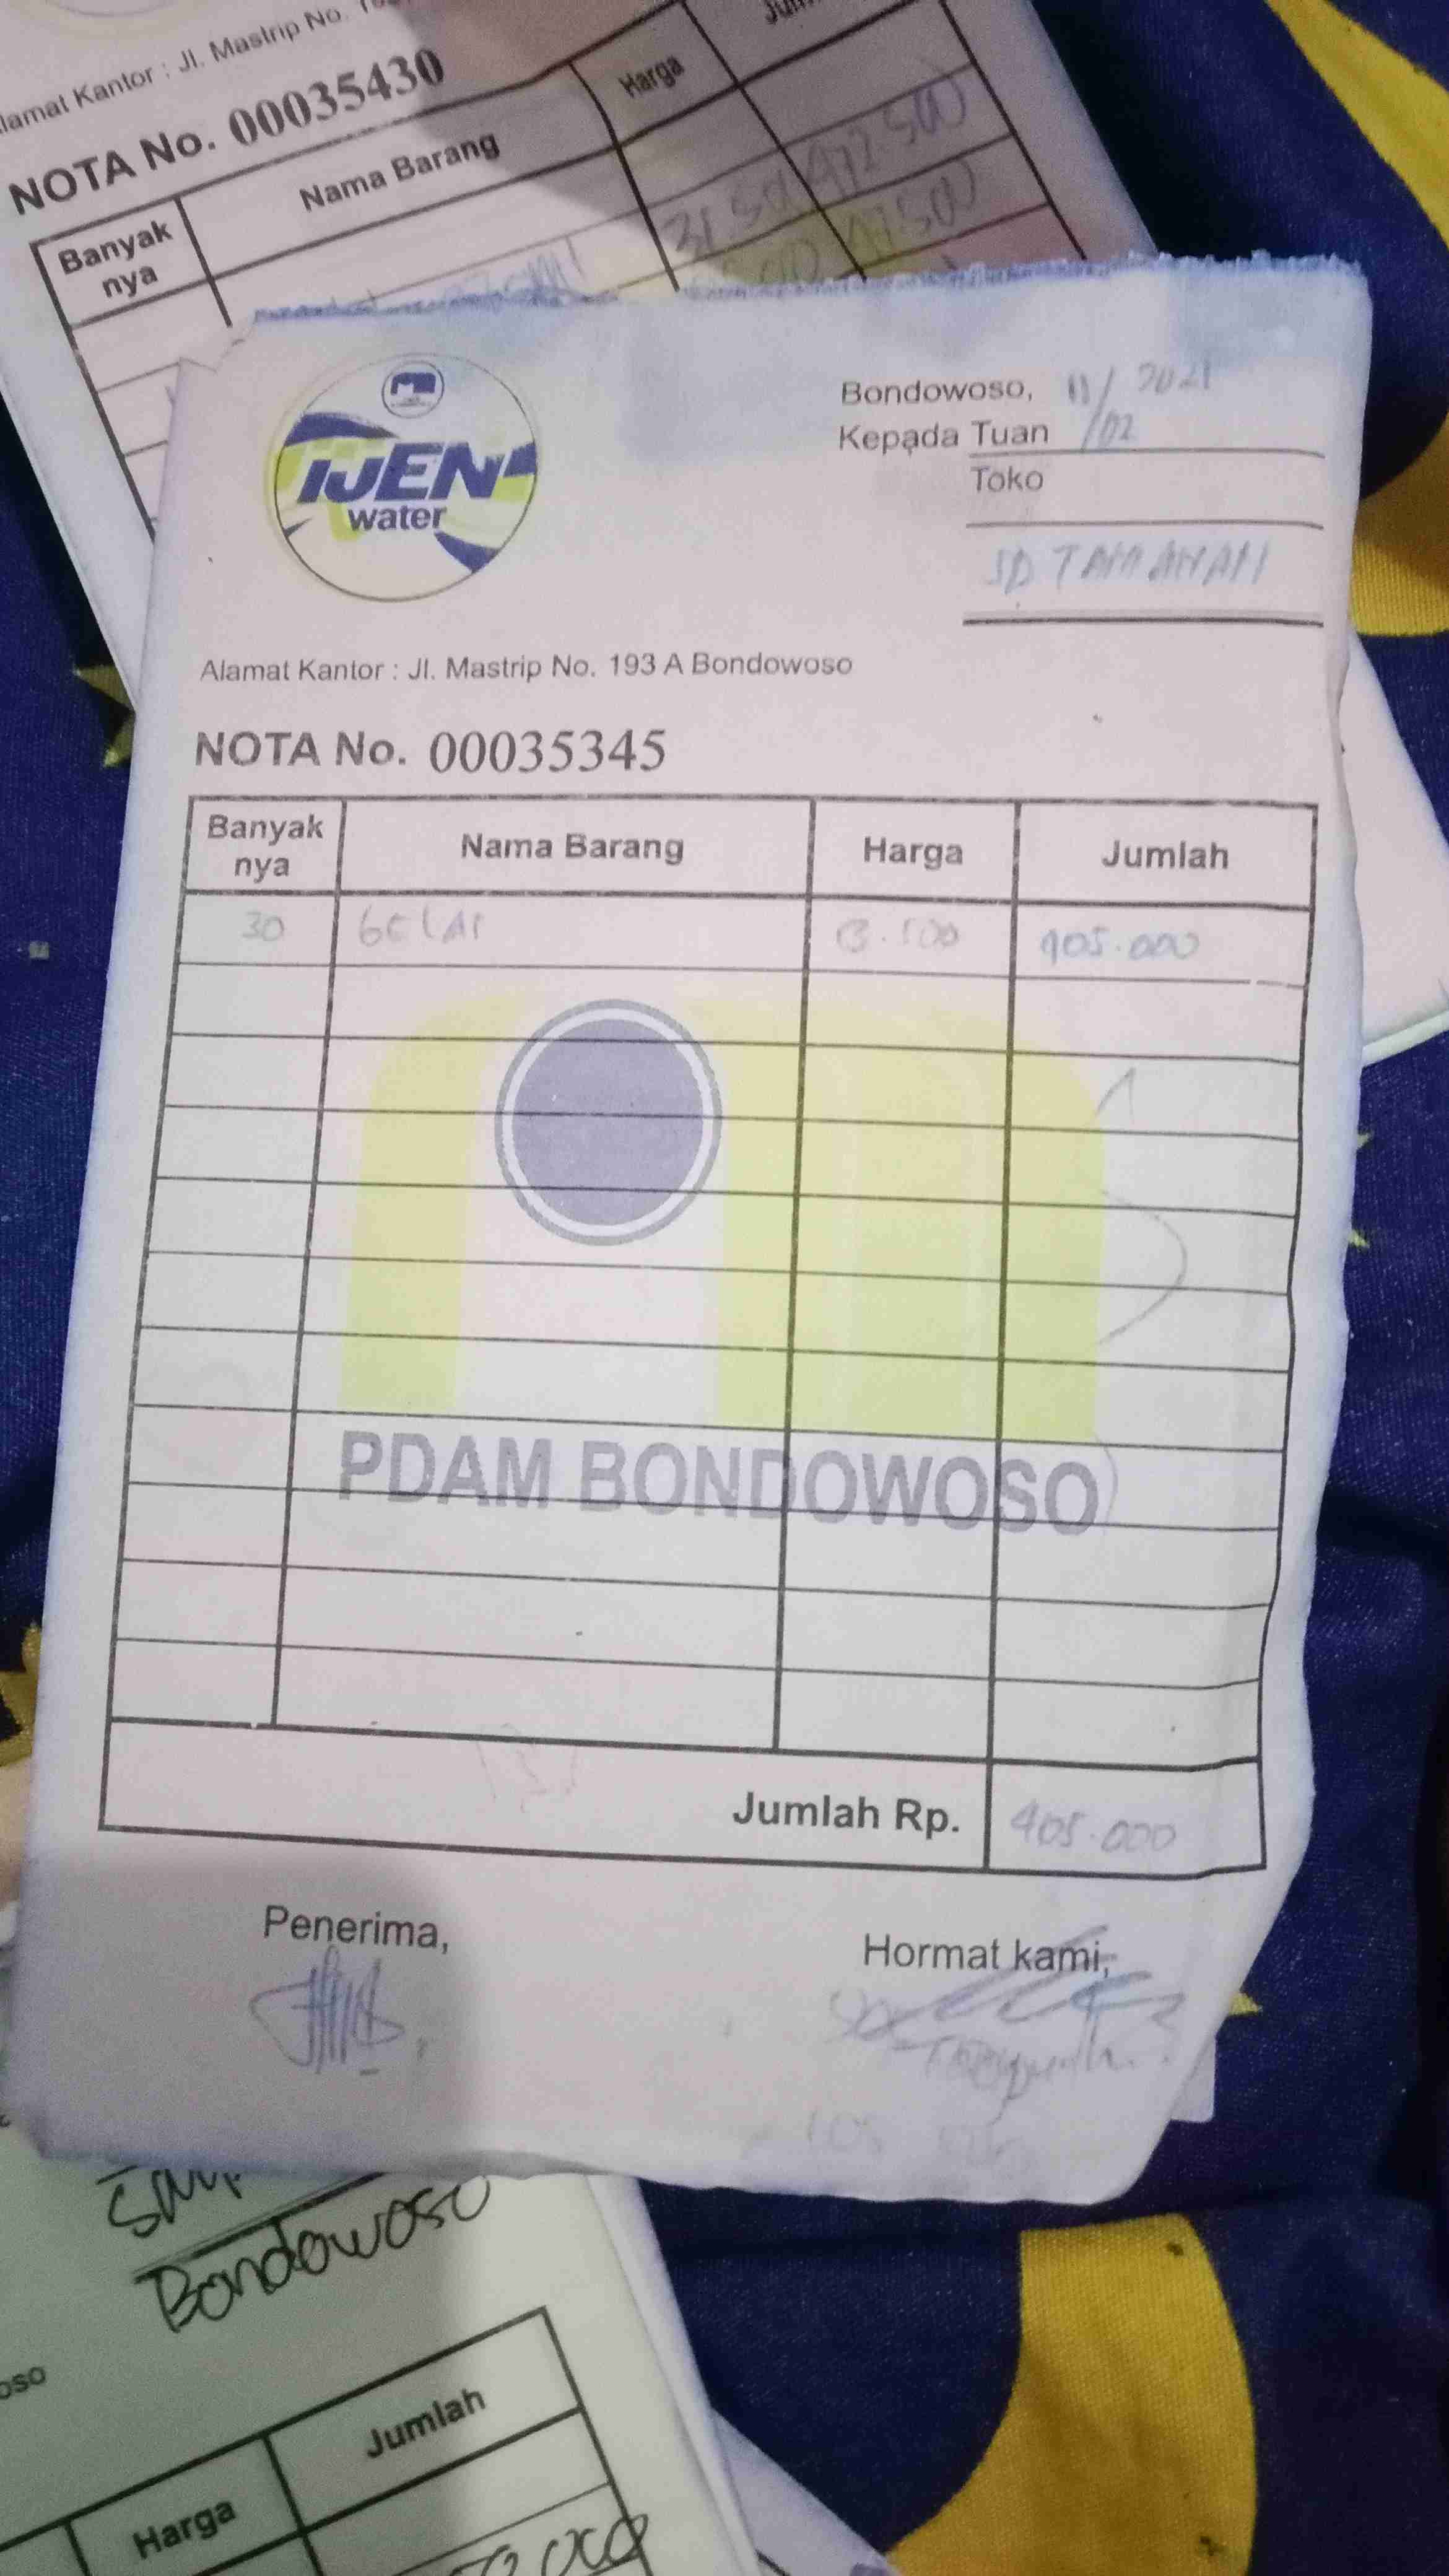 Alamat Kantor : Jl. Mastrip No.
NOTA No. 00035430
Banyak nya
Nama Barang
Harga
31.500 472.500
47.500
IJEN
water
Bondowoso, 11/02 2021
Kepada Tuan
Toko
SD TAMANAN
Alamat Kantor : Jl. Mastrip No. 193 A Bondowoso
NOTA No. 00035345
Banyak nya Nama Barang Harga Jumlah
30 GELAS 13.500 405.000
PDAM BONDOWOSO
Jumlah Rp. 405.000
Penerima,
Hormat kami,
Bondowoso
Harga Jumlah